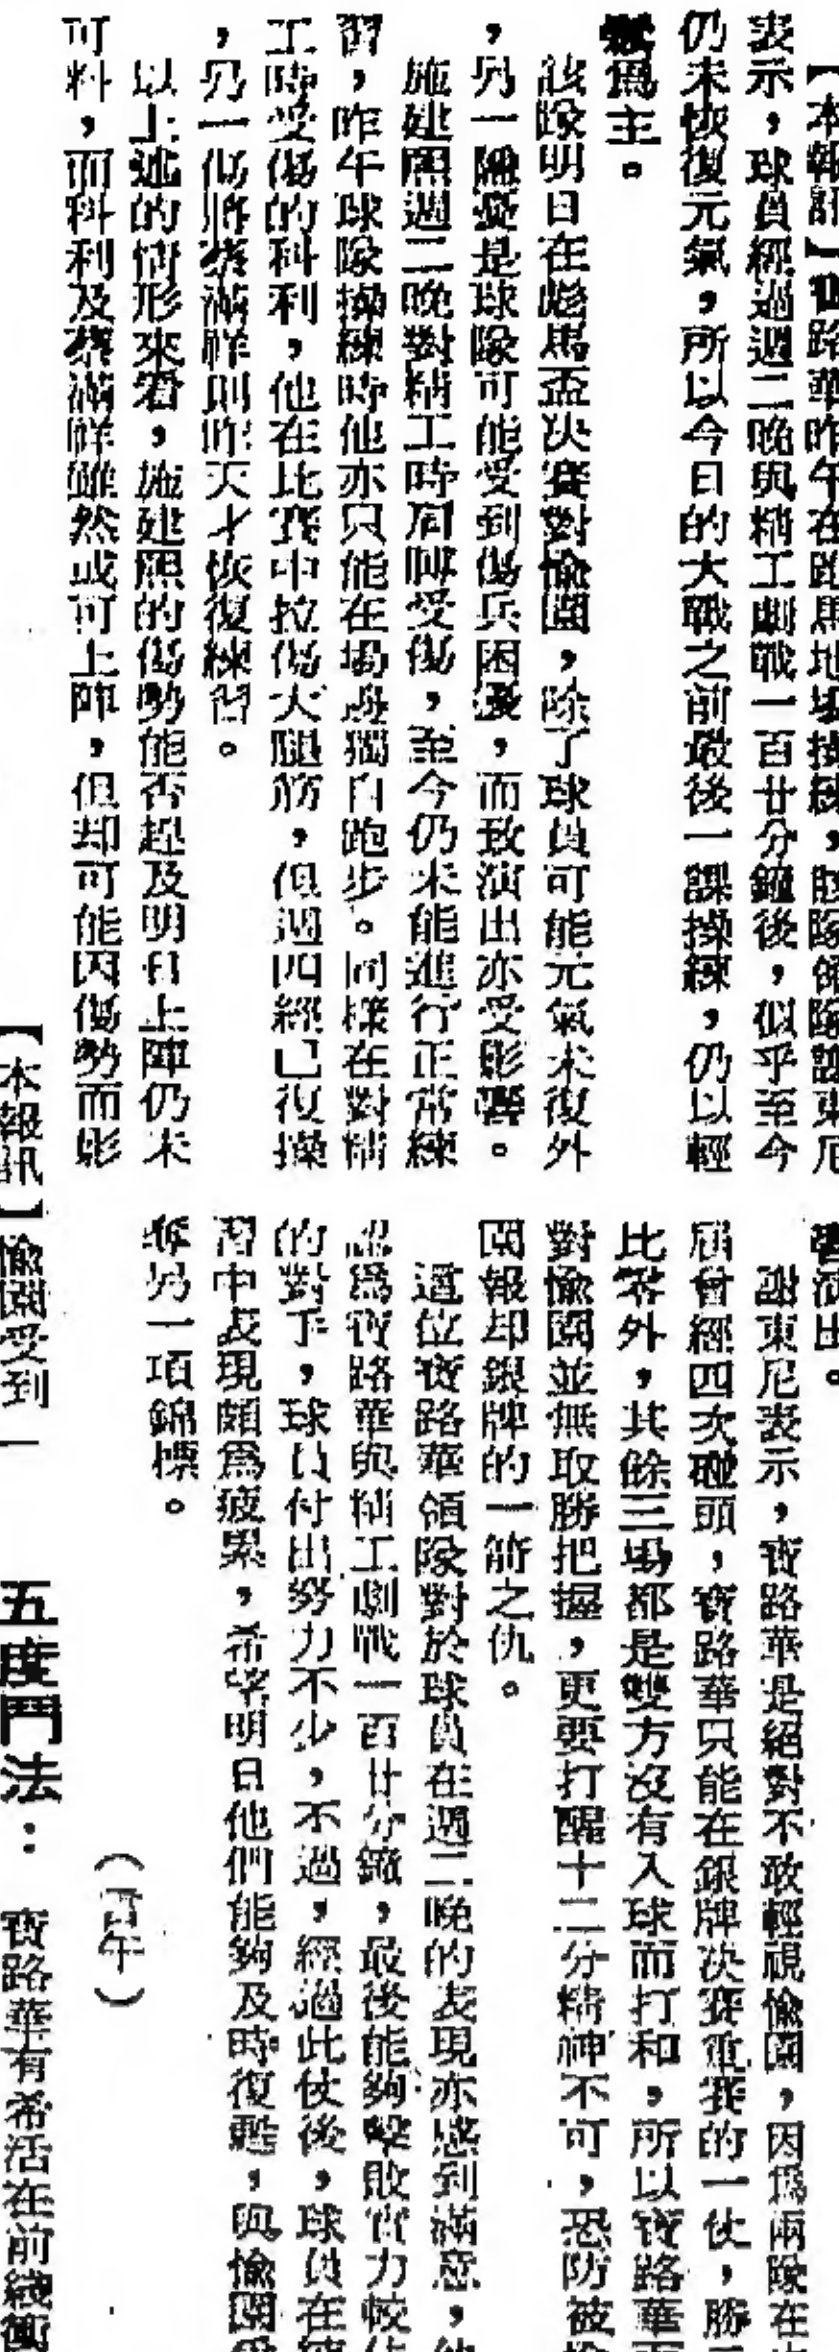 【本報訊】寶路華昨午在跑馬地場操練,該隊領隊謝東尼
表示,球員經過週二晚與精工劇戰一百廿分鐘後,似乎至今
仍未恢復元氣,所以今日的大戰之前最後一課操練,仍以輕
鬆爲主。
該隊明日在彪馬盃决賽對愉園,除了球員可能元氣未復外
,另一隱憂是球隊可能受到傷兵困擾,而致演出亦受影響。
施建熙週二晚對精工時肩膊受傷,至今仍未能進行正常練
習,昨午球隊操練時他亦只能在場邊獨自跑步。同樣在對精
工時受傷的科利,他在比賽中拉傷大腿筋,但週四經已復操
,另一傷將蔡滿祥則昨天才恢復練習。
以上述的情形來看,施建熙的傷勢能否趕及明日上陣仍未
可料,而科利及蔡滿祥雖然或可上陣,但却可能因傷勢而影
響演出。
謝東尼表示,寶路華是絕對不敢輕視愉園,因爲兩隊在
屆會經四次碰頭,寶路華只能在銀牌决賽重賽的一仗,勝
比零外,其餘三場都是雙方沒有入球而打和,所以寶路華
對愉園並無取勝把握,更要打醒十二分精神不可,恐防被
園報却銀牌的一箭之仇。
這位寶路華領隊對於球員在週二晚的表現亦感到滿意,
認爲寶路華與精工劇戰一百廿分鐘,最後能夠擊敗實力較
的對手,球員付出努力不少,不過,經過此仗後,球員在
習中表現頗爲疲累,希望明日他們能夠及時復甦,與愉園
奪另一項錦標。
(雷午)
【本報訊】愉園受到一
五度鬥法: 寶路華有希活在前綫衝